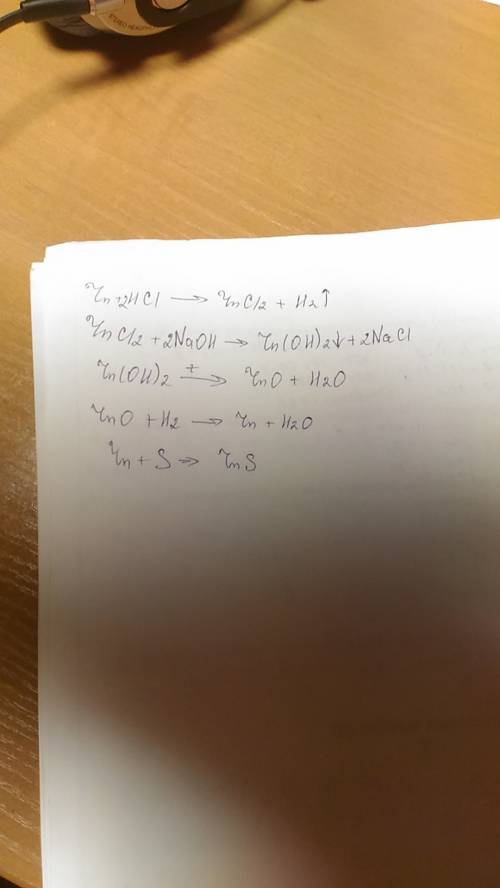 STEREO HEADPHO
Zn+2HCl → ZnCl2 + H2↑
ZnCl2 + 2NaOH → Zn(OH)2↓ + 2NaCl
Zn(OH)2 t→ ZnO + H2O
ZnO + H2 → Zn + H2O
Zn + S → ZnS